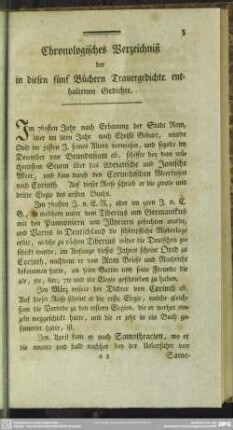 Chronologisches Verzeichniß
der
in diesen fünf Büchern Trauergedichte ent-
haltenen Gedichte.
Im 761sten Jahr nach Erbauung der Stadt Rom,
oder im 9ten Jahr nach Christi Geburt, wurde
Ovid im 51sten J. seines Alters verwiesen, und segelte im
December von Brundusium ab, schiffte bey dem wü-
thendsten Sturm über das Adriatische und Jonische
Meer, und kam durch den Corinthischen Meerbusen
nach Corinth. Auf dieser Reise schrieb er die zweite und
dritte Elegie des ersten Buchs.
Im 762sten J. n. E. R., oder im 9ten J. n. C.
G., in welchem unter dem Tiberius und Germanikus
mit den Pannoniern und Illyriern gefochten wurde,
und Varus in Deutschland die schimpfliche Niederlage
erlitt, welche zu rächen Tiberius wider die Deutschen ge-
schickt wurde, im Anfange dieses Jahres scheint Ovid zu
Corinth, nachdem er von Rom Briefe und Nachricht
bekommen hatte, an seine Gattin und seine Freunde die
4te, 5te, 6te, 7te und die Elegie geschrieben zu haben.
Im März reiste der Dichter von Corinth ab.
Auf dieser Reise scheint er die erste Elegie, welche gleich-
sam die Vorrede zu den ersten Elegien, die er vorher ein-
zeln weggeschickt hatte, und die er jetzt in ein Buch ge-
sammelt hatte, ist.
Im April kam er nach Samothracien, wo er
die neunte und bald nachher bey der Ueberfahrt von
a 3
Samo-